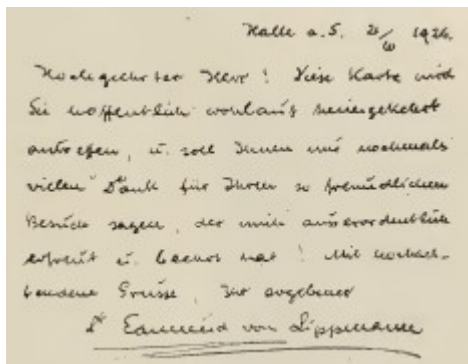 Halle a. S. 21/10 1926.
Hochgeehrter Herr! Diese Karte wird
Sie hoffentlich wohlauf heimgekehrt
antreffen, u. soll Ihnen nur nochmals
vielen Dank für Ihren so freundlichen
Besuch sagen, der mich ausserordentlich
erfreut u. beehrt hat! Mit hochach-
tendem Grusse, Ihr ergebener
Dr Edmund von Lippmann